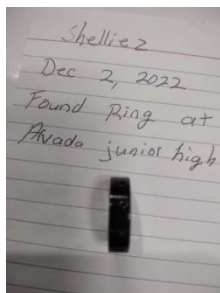 Shelliez
Dec 2, 2022
Found Ring at
Avada junior high